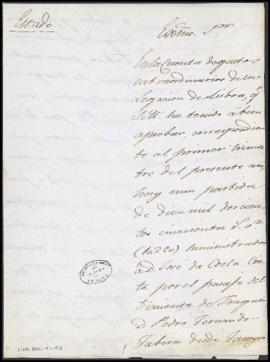 Estado
Exmo. Sor.
En la cuenta de gastos
extraordinarios de la
Legacion de Lisboa, q.e
S.M. ha tenido a bien
aprobar, correspondien
te al primer trimes
tre del presente año
hay una partida
de diez mil doscien
tos cincuenta
(10.250) suministrados
a D. José da Costa
por el pasaje del
teniente de Fragata
D. Pedro Fernando
Tabera desde